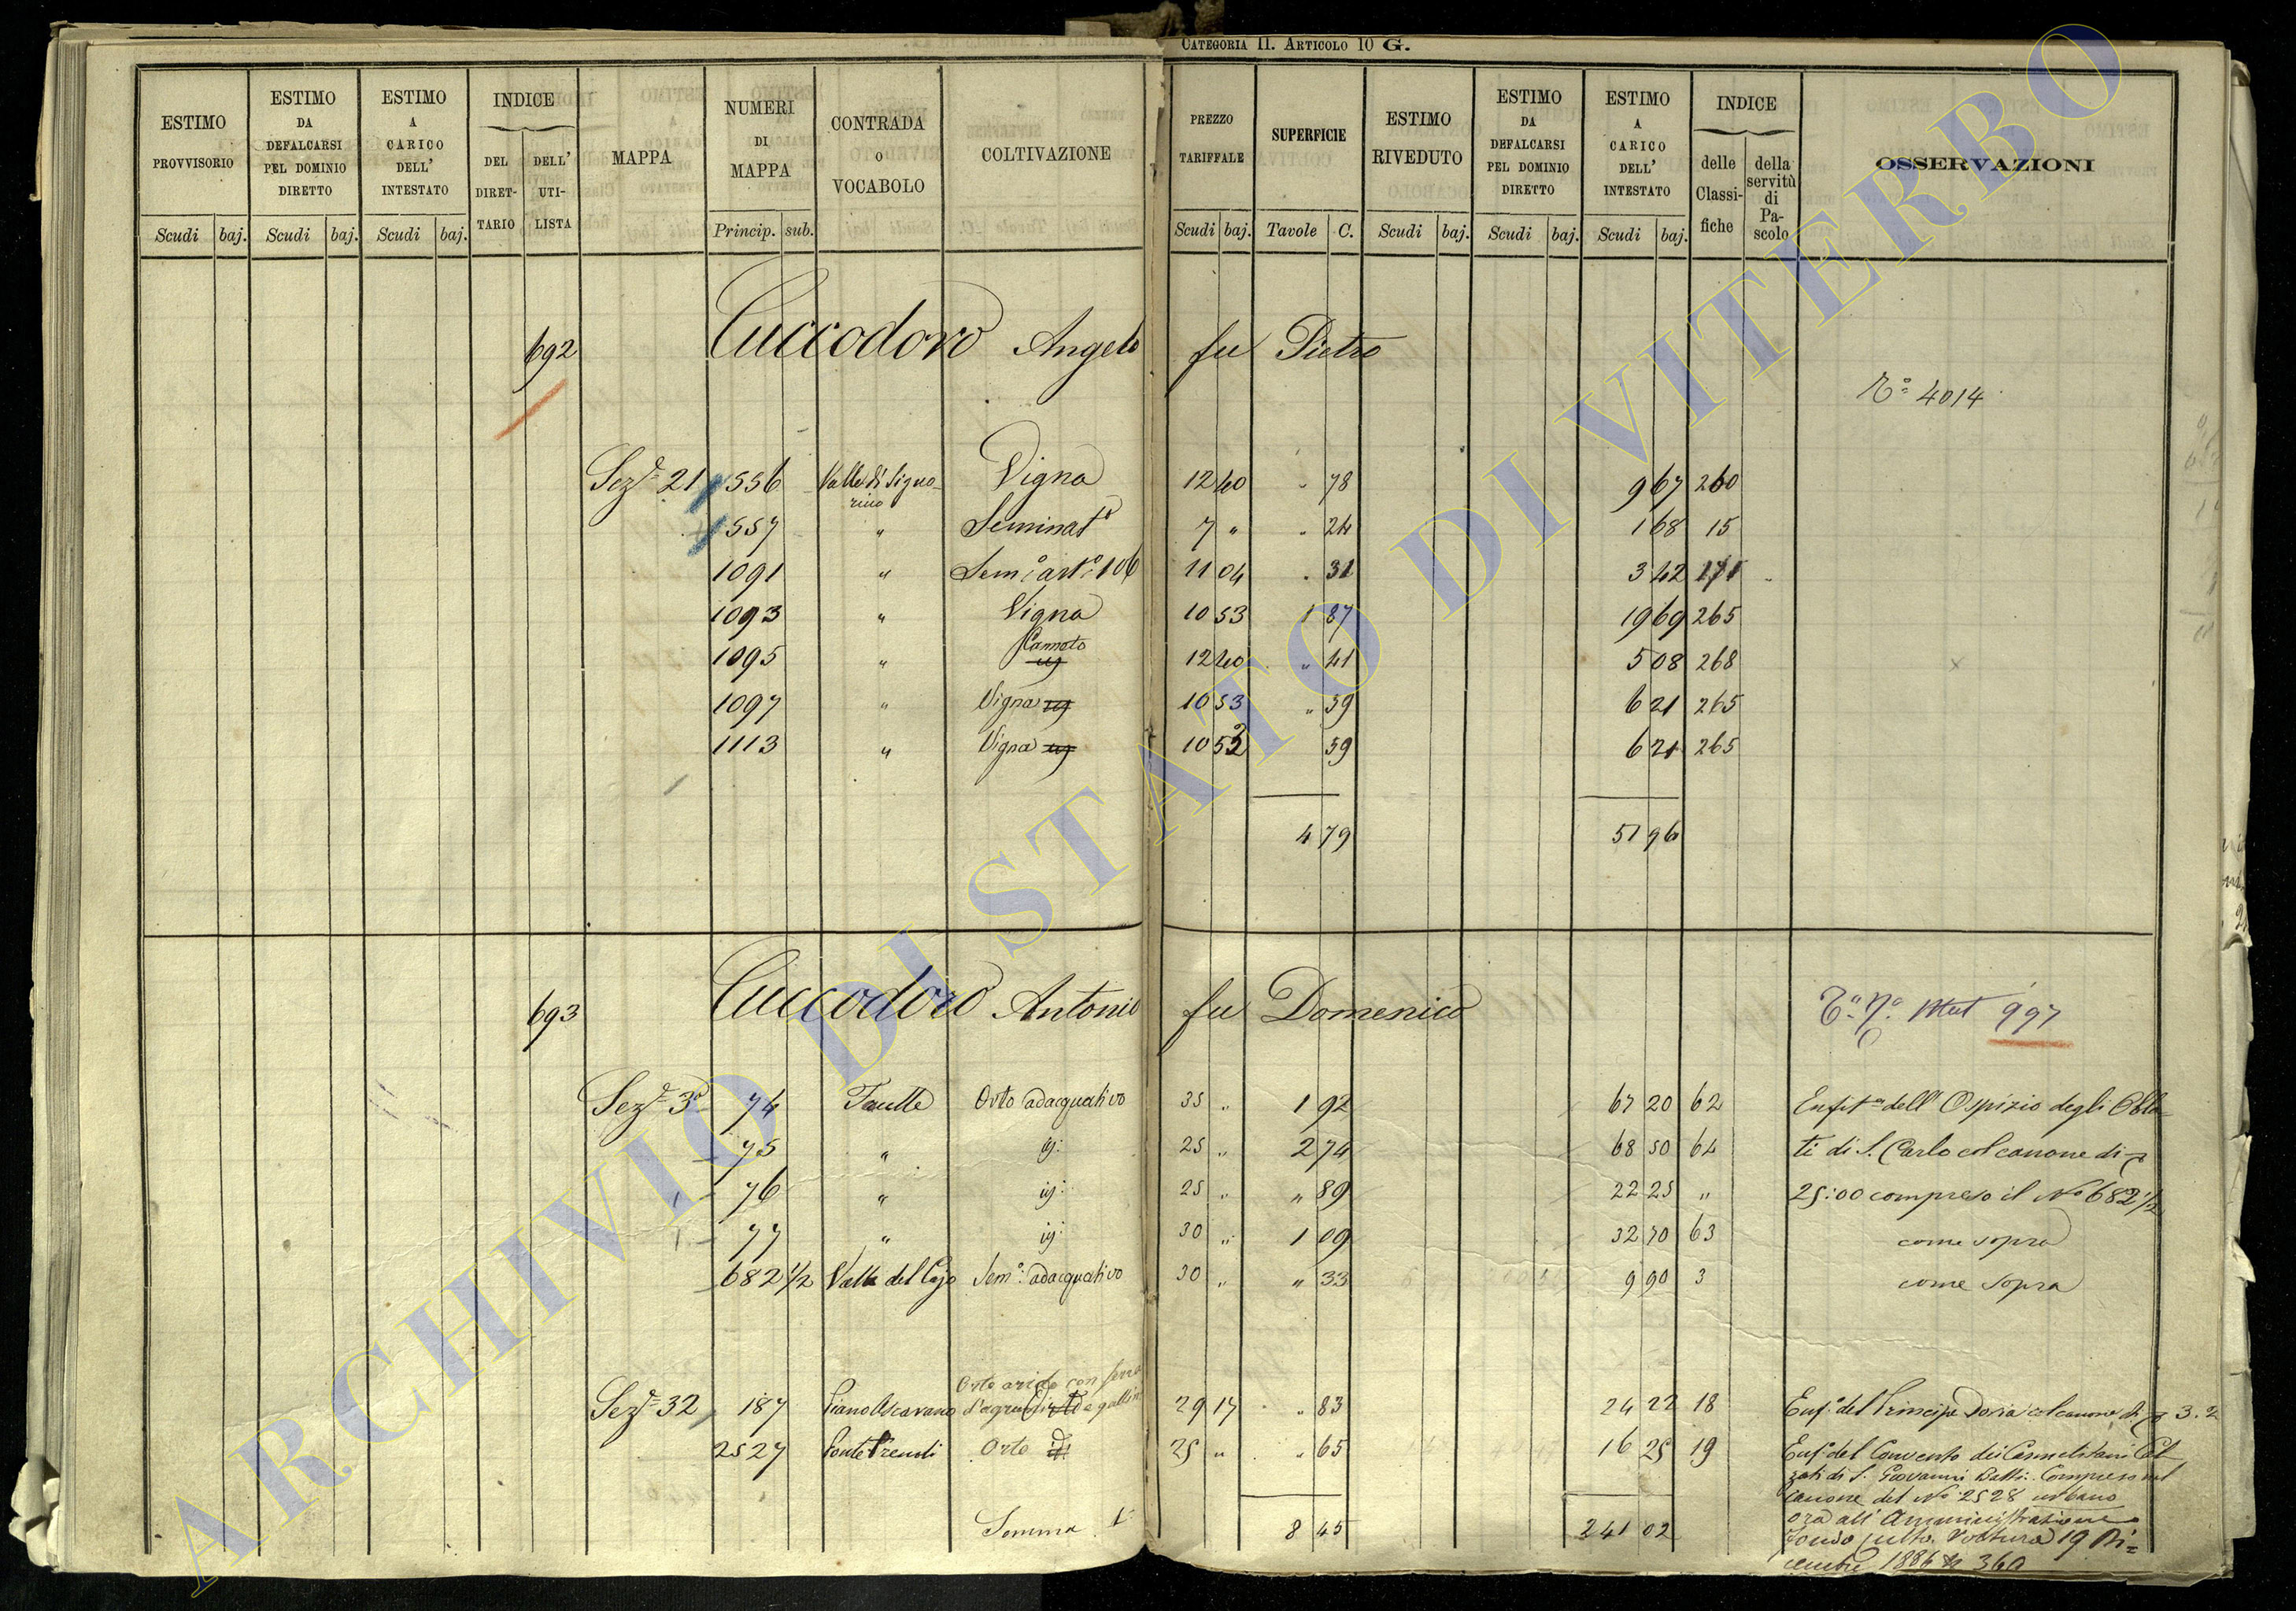 CATEGORIA II. ARTICOLO 10 G.
ESTIMO PROVVISORIO | ESTIMO DA DEFALCARSI PEL DOMINIO DIRETTO | ESTIMO A CARICO DELL' INTESTATO | INDICE | MAPPA | NUMERI DI MAPPA | CONTRADA O VOCABOLO | COLTIVAZIONE | PREZZO TARIFFALE | SUPERFICIE | ESTIMO RIVEDUTO | ESTIMO DA DEFALCARSI PEL DOMINIO DIRETTO | ESTIMO A CARICO DELL' INTESTATO | INDICE | OSSERVAZIONI
DEL DIRETTARIO | DELL' UTILISTA | delle Classifiche | della servitù di Pascolo
Scudi | baj. | Scudi | baj. | Scudi | baj. | Princip. | sub. | Scudi | baj. | Tavole | C. | Scudi | baj. | Scudi | baj. | Scudi | baj.
692 Cuccodoro Angelo fu Pietro
4014
Sez.e 21 556 Valle di Signorino Vigna 12 40 " 78 9 67 260
557 " Seminato 7 " " 24 1 68 15
1091 " Sem:o art:o 106 11 04 " 31 3 42 171
1093 " Vigna 10 53 1 87 19 69 265
1095 " Canneto 12 40 " 41 5 08 268
1097 " Vigna 10 53 " 59 6 21 265
1113 " Vigna 10 53 59 6 21 265
4 79 51 96
693 Cuccodoro Antonio fu Domenico
Mut 997
Sez.e 3a 74 Faulle Orto adacquativo 35 " 1 92 67 20 62 Enfit.a dell' Ospizio degli Obla-
75 " ij: 25 " 2 74 68 50 64 ti di S. Carlo col canone di
76 " ij: 25 " " 89 22 25 " 25:00 compreso il No 682 1/2
77 " ij: 30 " 1 09 32 70 63 come sopra
682 1/2 Valle del Cajo Sem:o adacquativo 30 " " 33 9 90 3 come sopra
Sez.e 32 187 Piano Ascarano Orto arido con 29 17 " 83 24 22 18 Enf.a del Principe Doria col canone di 3.2
2527 Orto 25 " " 65 16 25 19 Enf.a del Convento dei Carmelitani Cal
zati di S. Giovanni Batt. Compreso nel
canone del No 2528 urbano
ora all' Amministrazione
fondo culto. Voltura 19 Di=
cembre 1886 360
Somma 8 45 241 02
ARCHIVIO DI STATO DI VITERBO